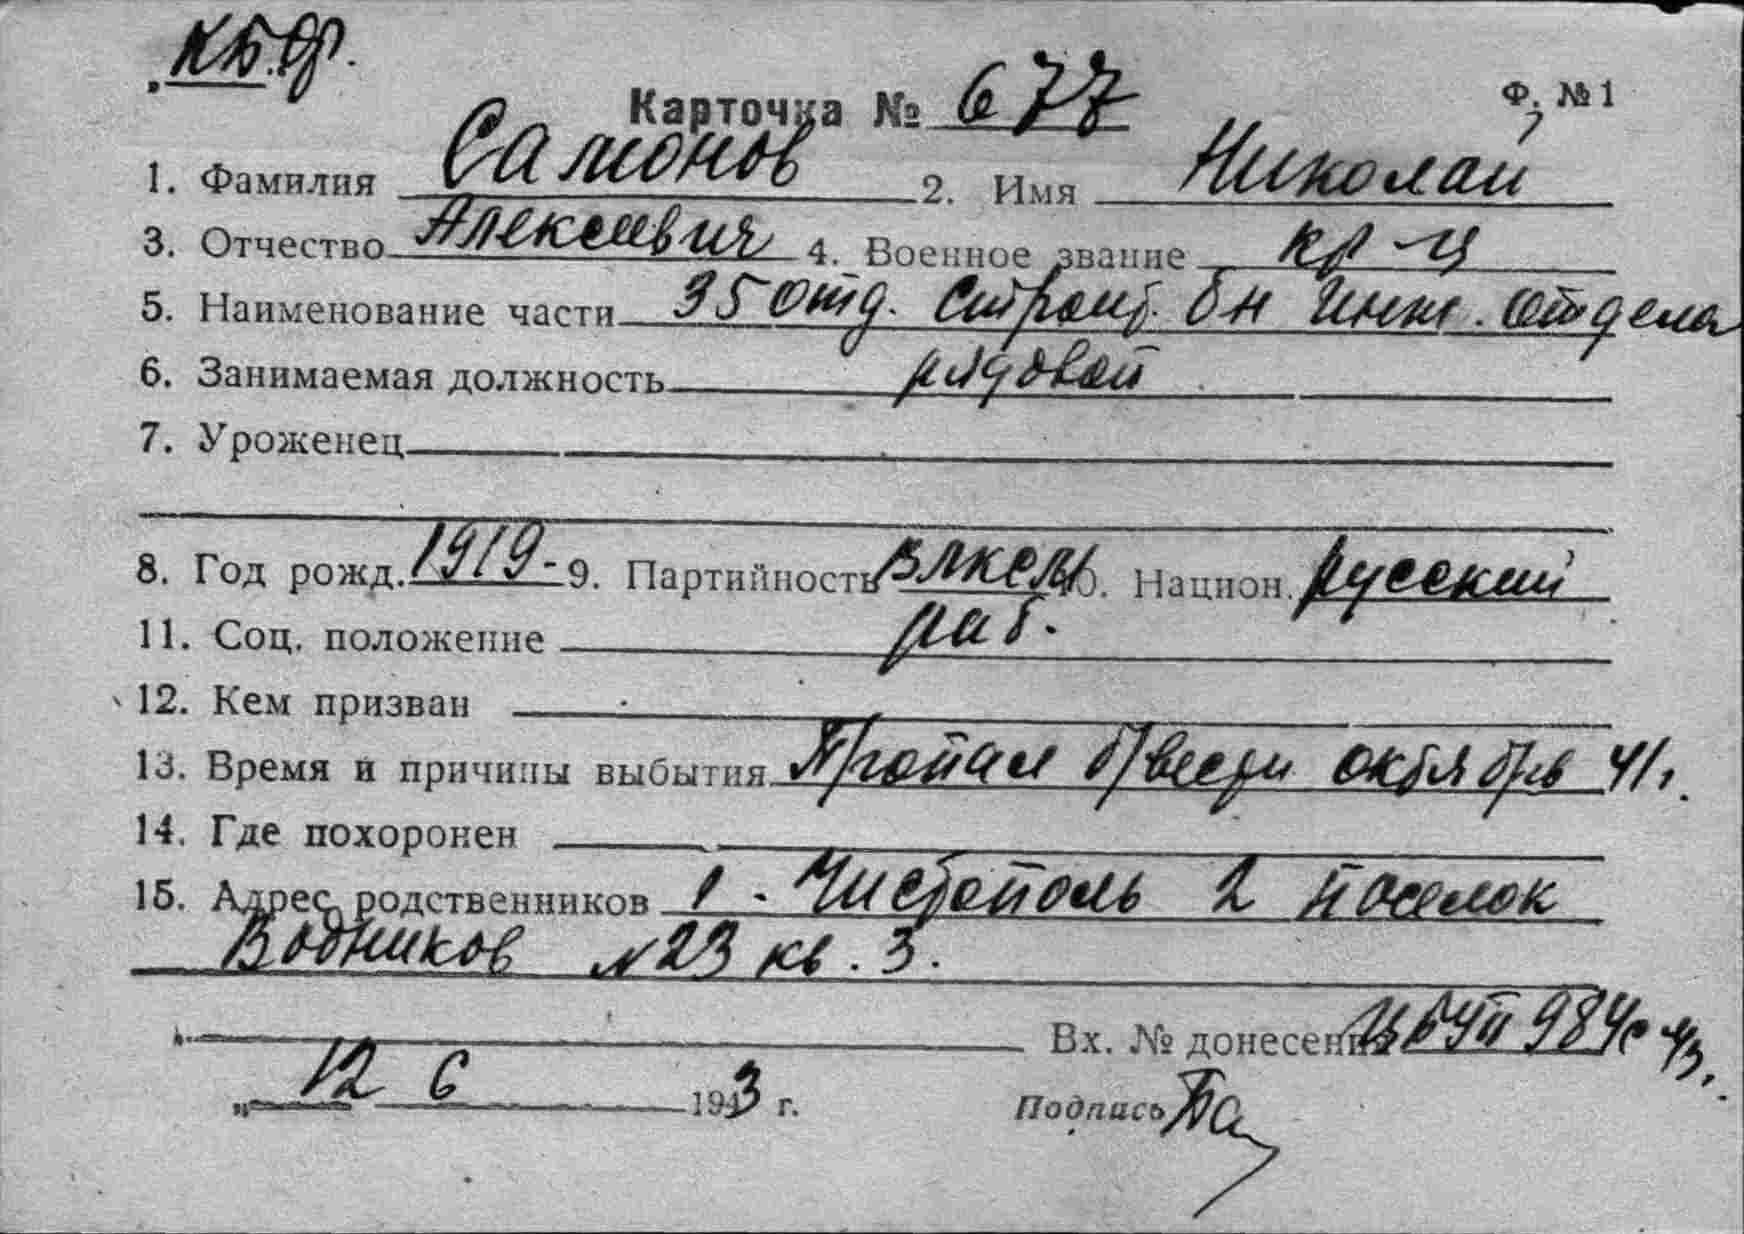 КБФ.
Карточка № 677
Ф. № 1
1. Фамилия Самонов 2. Имя Николай
3. Отчество Алексеевич 4. Военное звание кр-ц
5. Наименование части 35 отд. строит. б-н Инж. Отдела
6. Занимаемая должность рядовой
7. Уроженец
8. Год рожд. 1919 - 9. Партийность ВЛКСМ 10. Национ. русский
11. Соц. положение раб.
12. Кем призван
13. Время и причины выбытия Пропал б/вести октябрь 41 г.
14. Где похоронен
15. Адрес родственников Чистополь 2 поселок
Водников №23 кв. 3.
Вх. № донесения 984с 43.
„ 12 6 1943 г. Подпись